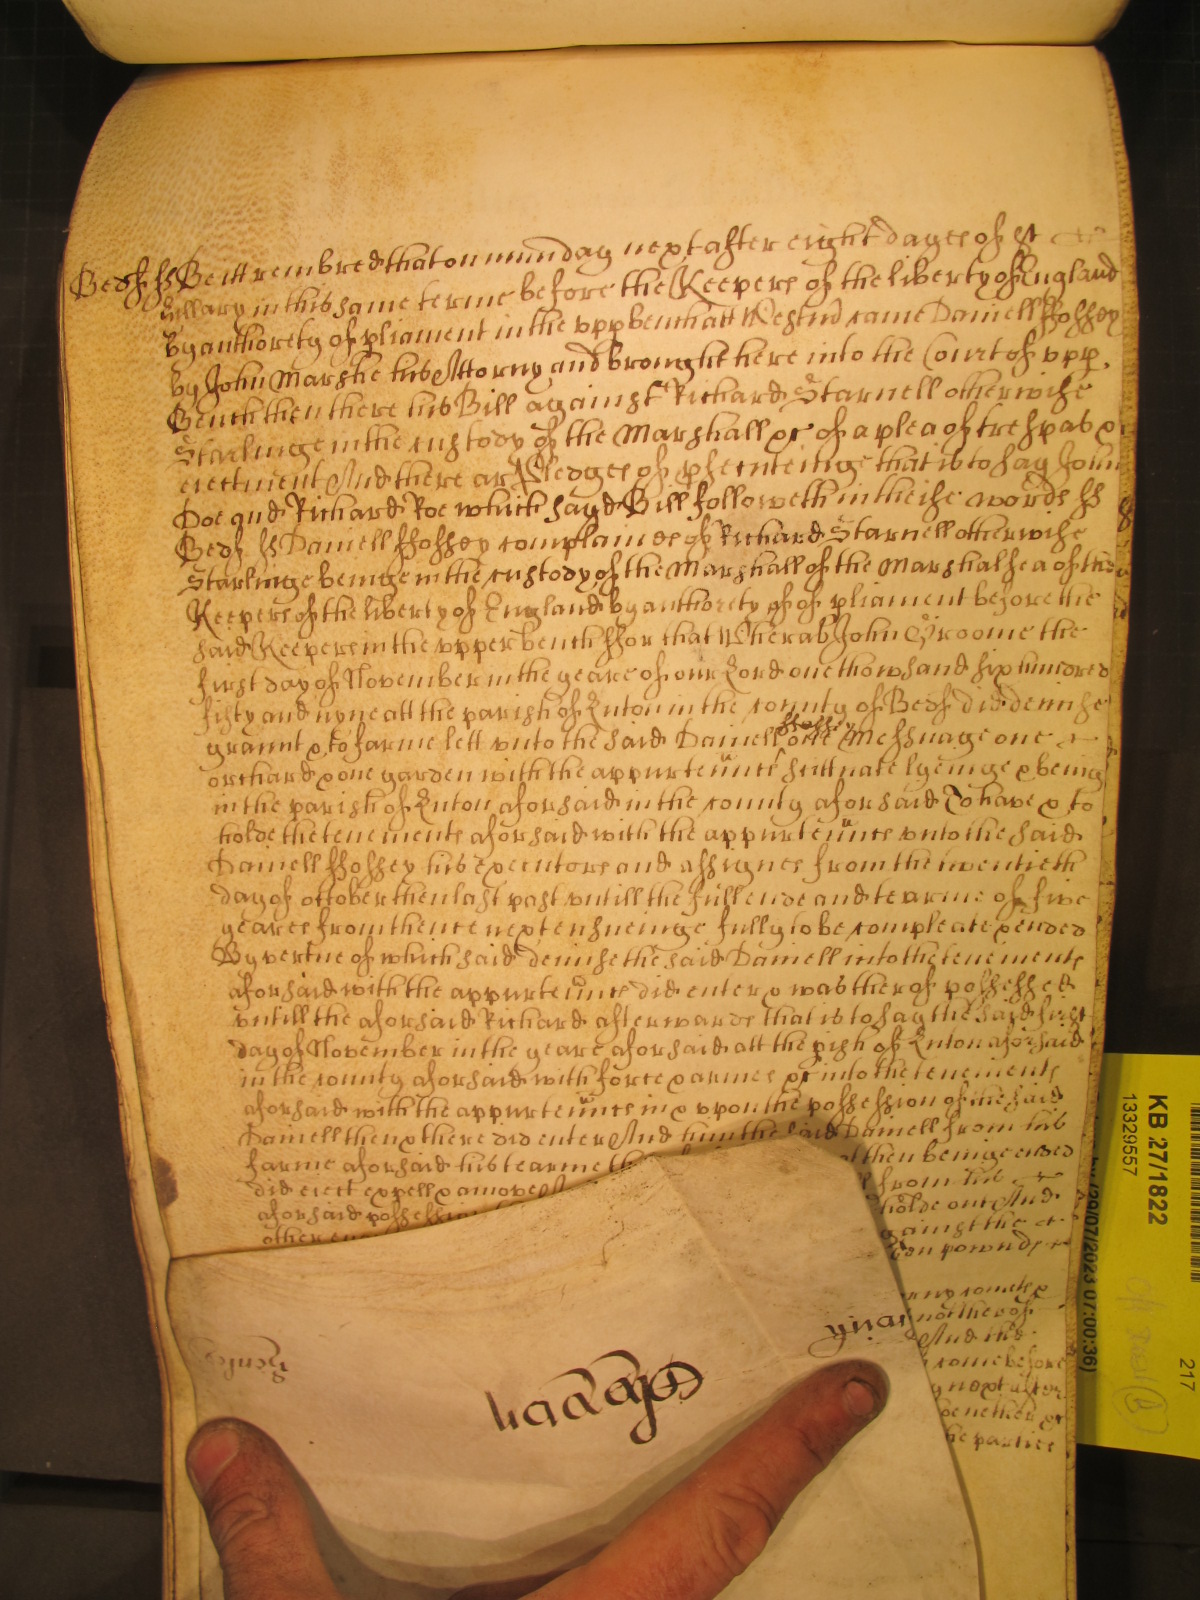 Bedf ss Be itt remembred that on munday next after eight dayes of St
Hillary in this same terme before the Keepers of the liberty of England
by authorety of pliament in the upp bench att Westmr came Daniell ffossey
by John Marshe his Attorny and brought here into the Court of upp
Bench then there his Bill against Richard Starnell otherwise
Starlinge in the custody of the Marshall &c of a plea of trespas &
eiectment And there are Pledges of psecuteinge that is to say John
Doe and Richard Roe which sayd Bill followeth in theise words ss
Bedf ss Daniell ffossey complaines of Richard Starnell otherwise
Starlinge beinge in the custody of the Marshall of the Marshalsea of the
Keepers of the liberty of England by authorety of of pliament before the
said Keepers in the upper bench ffor that Wheras John Groome the
first day of November in the yeare of our Lord one thowsand six hundred
fifty and nyne att the parish of Luton in the county of Bedf did demise
graunt & to farme lett unto the said Daniell ffossey one Messuage one
orchard & one garden with the appurtennts scittuate lyeinge & being
in the parish of Luton aforsaid in the county aforsaid To have & to
holde the tenements aforsaid with the appurtennts unto the said
Daniell ffossey his executors and assignes from the twentieth
day of october then last past untill the full ende and tearme of five
yeares from thence next ensueinge fully to be compleate & ended
By vertue of which said demise the said Daniell into the tenements
aforsaid with the appurtennts did enter & was therof possessed
untill the aforsaid Richard afterwards that is to say the said first
day of November in the yeare aforsaid att the pish of Luton aforsaid
in the county aforsaid with force & armes &c into the tenements
aforsaid with the appurtennts in & upon the possession of the said
Daniell then & there did enter And him the said Daniell from his
farme aforsaid his tearme then beinge ended
did eiect expell & amove from his
aforsaid possession holde out And
other against the
pownds
not therof
And the
come before
next after
the parties
KB 27/1822
13329557
217
29/07/2023 07:00:36)